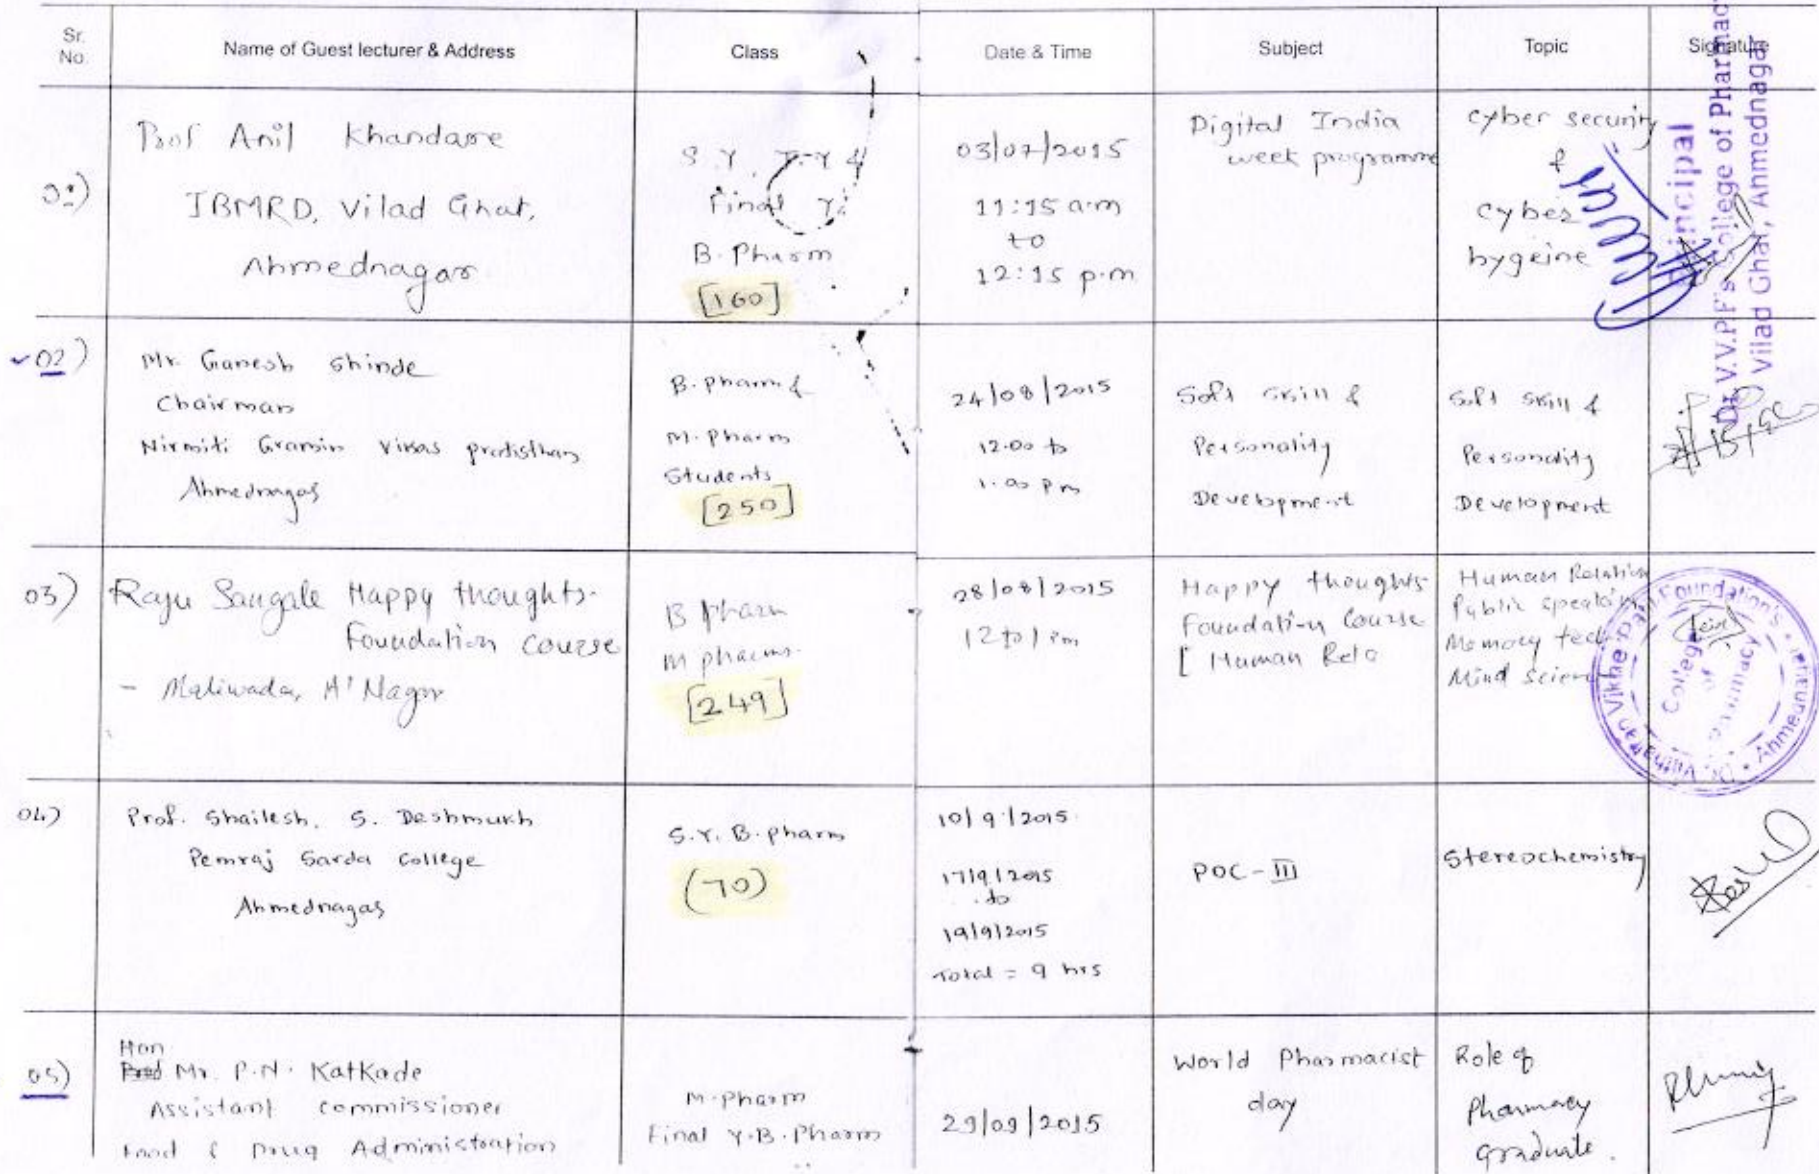 Sr. No.
Name of Guest lecturer & Address
Class
Date & Time
Subject
Topic
Signature
Prof Anil Khandare
IBMRD, Vilad Ghat,
Ahmednagar
S.Y. T.Y &
Final Y.
B. Pharm
[160]
03/07/2015
11:15 a.m
to
12:15 p.m
Digital India
week programme
cyber security
&
cyber
hygeine
Principal
Dr. V.V.P.F's College of Pharmac
Vilad Ghat, Ahmednagar
02)
Mr. Ganesh Shinde
Chairman
Nirmiti Gramin Vikas pratisthan
Ahmednagar
B. pharm &
M. pharm
Students
[250]
24/08/2015
12.00 to
1.00 pm
Soft skill &
Personality
Development
Soft skill &
Personality
Development
03)
Raju Sangale Happy thoughts-
Foundation course
- Maliwada, A'Nagar
B Pharm
M pharms.
[249]
28/08/2015
12 to 1 pm
Happy thoughts
Foundation Course
[ Human Rela
Human Relation
Public speakin
Memory tec
Mind Scien
Dr. Vithalrao Vikhe Patil Foundation's
College
of
Pharmacy
04)
Prof. Shailesh. S. Deshmukh
Pemraj Sarda College
Ahmednagar
S.Y. B. pharm
(70)
10/9/2015
17/9/2015
to
19/9/2015
Total = 9 hrs
POC-III
Stereochemistry
05)
Hon
Mr. P.N. Katkade
Assistant commissioner
Food & Drug Administration
M. Pharm
Final Y. B. Pharm
29/09/2015
World Pharmacist
day
Role of
Pharmacy
graduate.